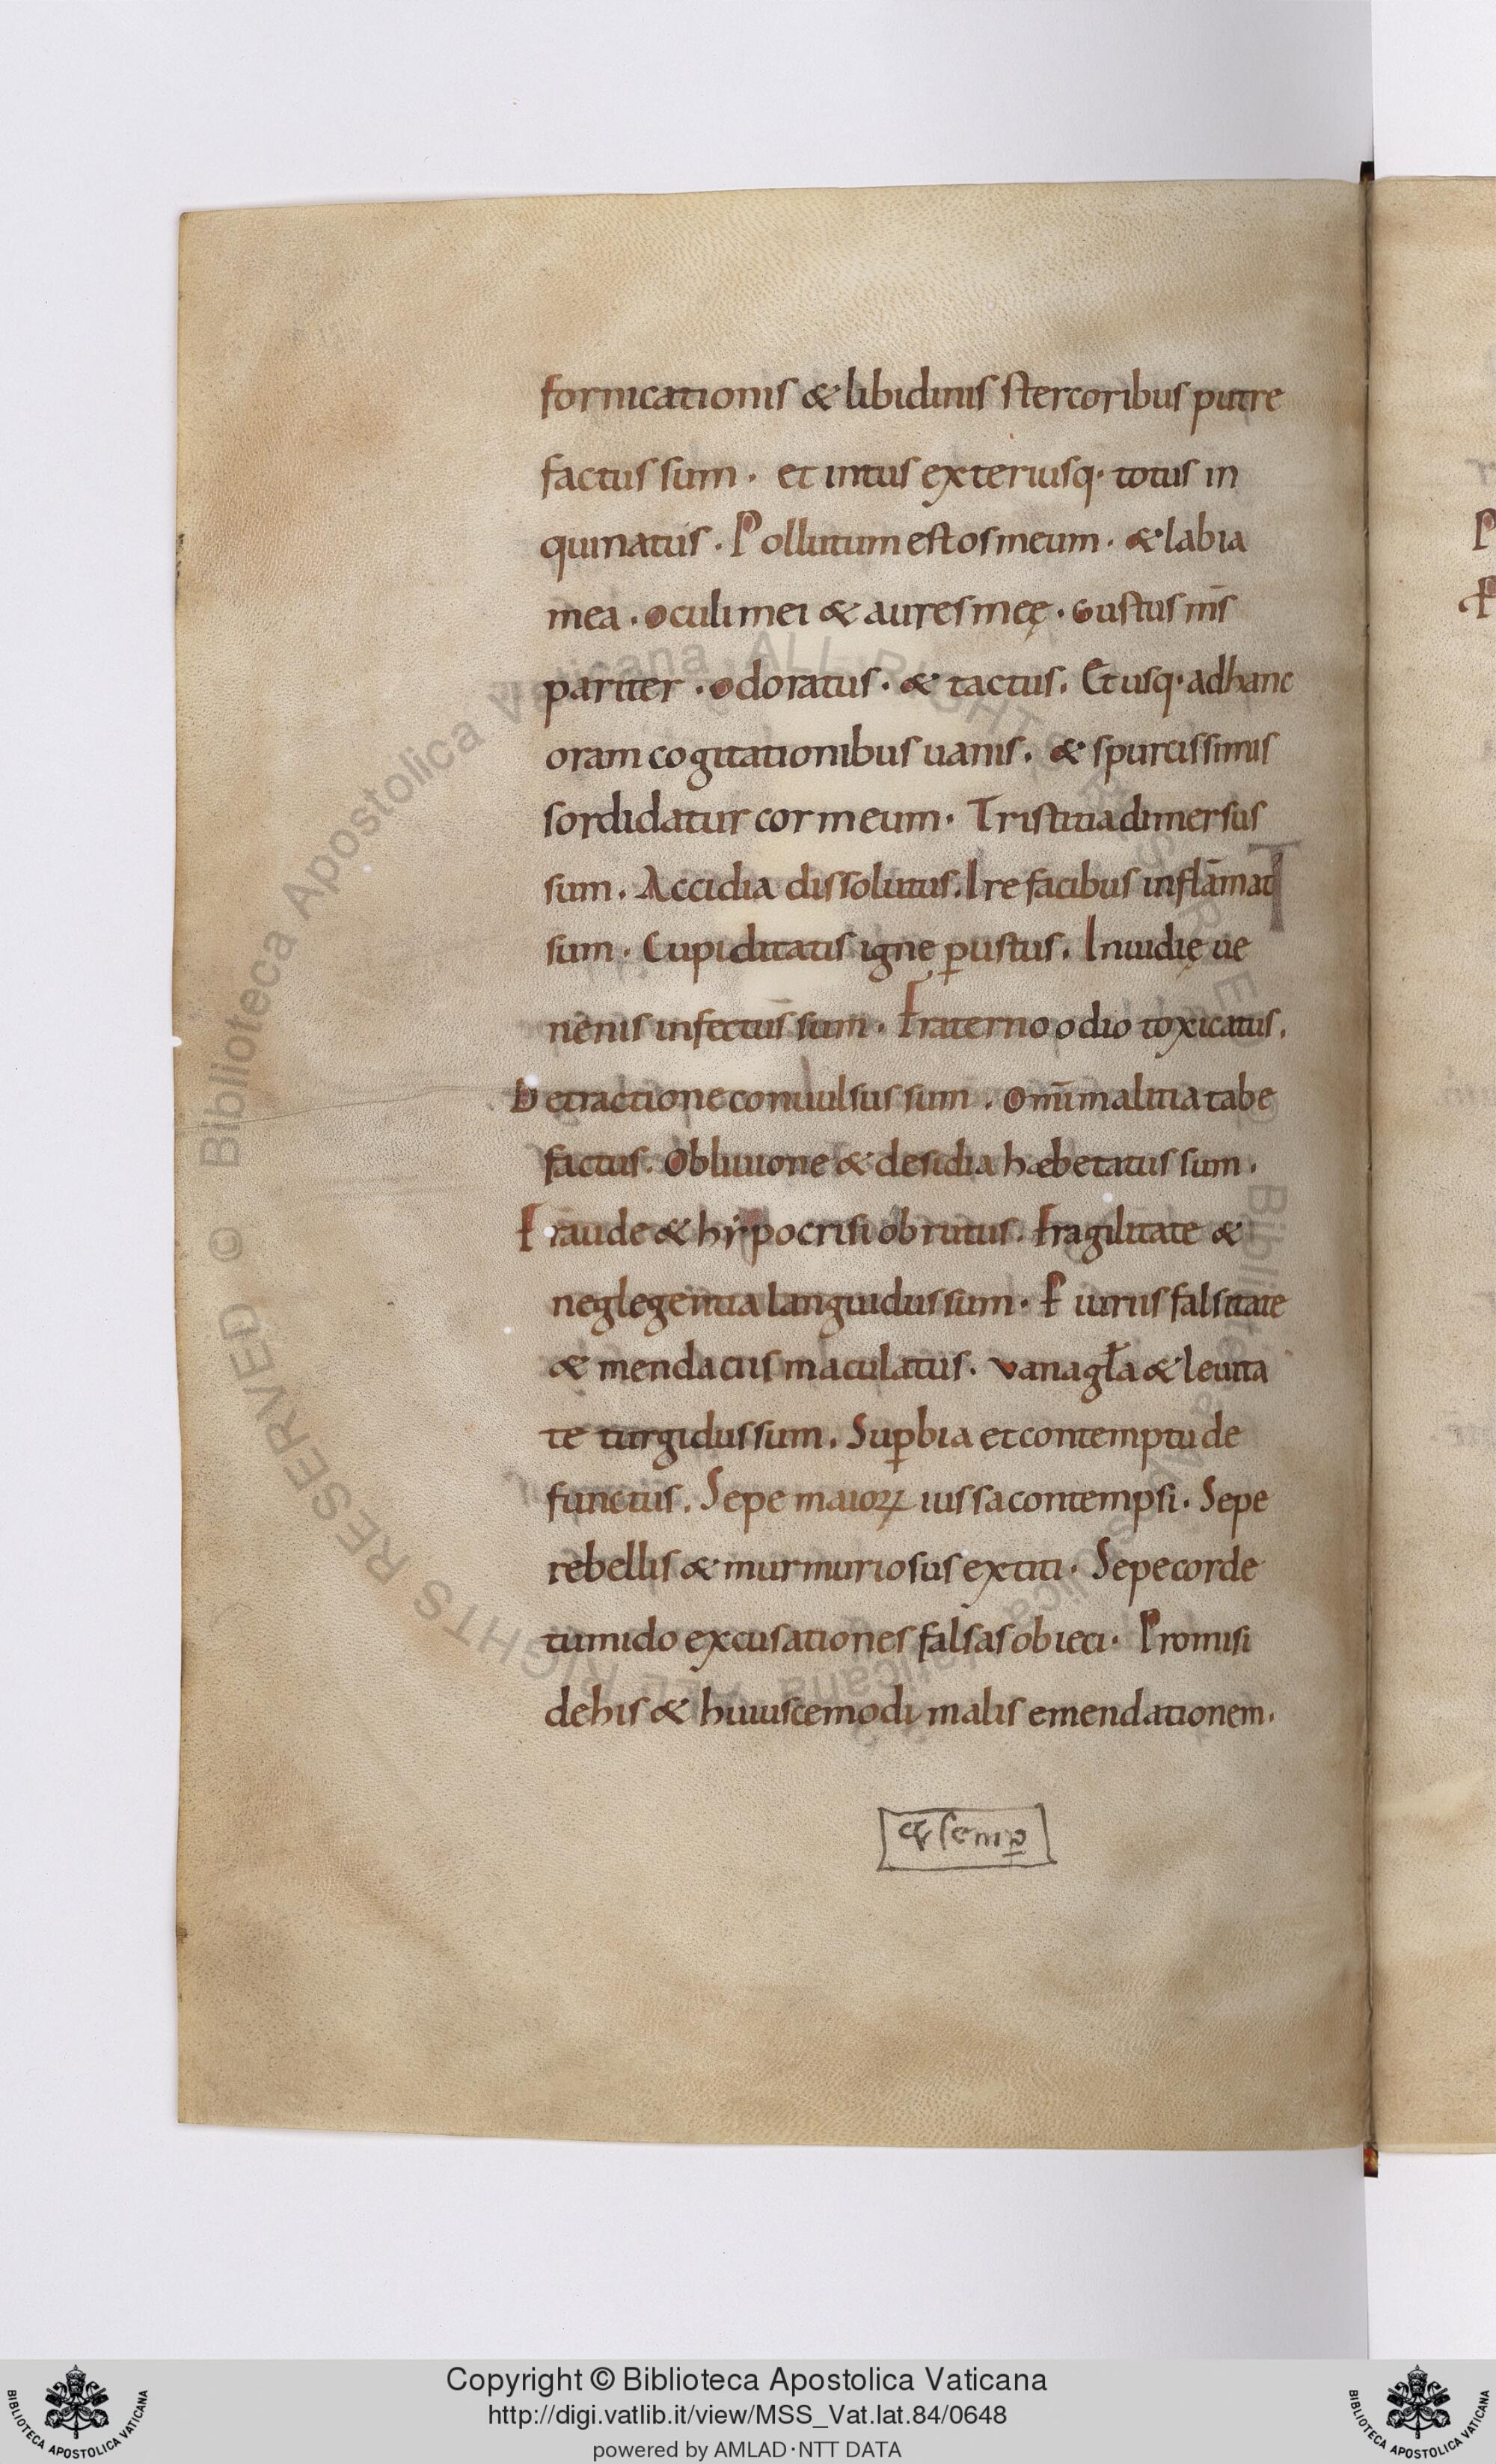 fornicationis & libidinis stercoribus putre
factus sum · et intus exteriusq· totus in
quinatus · Pollutum est os meum · & labia
mea · oculi mei & aures meę · Gustus ms̄
pariter · odoratus · & tactus. Et usq· ad hanc
oram cogitationibus uanis. & spurcissimis
sordidatur cor meum · Tristitia dimersus
sum. Accidia dissolutus. Ire facibus inflāmat
sum · Cupiditatis igne ꝑustus. Inuidię ue
nenis infectus sum · Fraterno odio toxicatus.
Detractione conuulsus sum . om̄i malitia tabe
factus. Obliuione & desidia hæbetatus sum.
Fraude & hẏpocrisi obrutus. Fragilitate &
neglegentia languidus sum · Furtiis falsitate
& mendaciis maculatus. vanagła & leuita
te turgidus sum. Suꝑbia et contemptu de
functus. Sepe maioꝝ iussa contempsi. Sepe
rebellis & murmuriosus extiti · Sepe corde
tumido excusationes falsas obieci · Promisi
de his & huiuscemodi malis emendationem.
& semꝑ
Copyright © Biblioteca Apostolica Vaticana
http://digi.vatlib.it/view/MSS_Vat.lat.84/0648
powered by AMLAD·NTT DATA
BIBLIOTECA APOSTOLICA VATICANA
BIBLIOTECA APOSTOLICA VATICANA